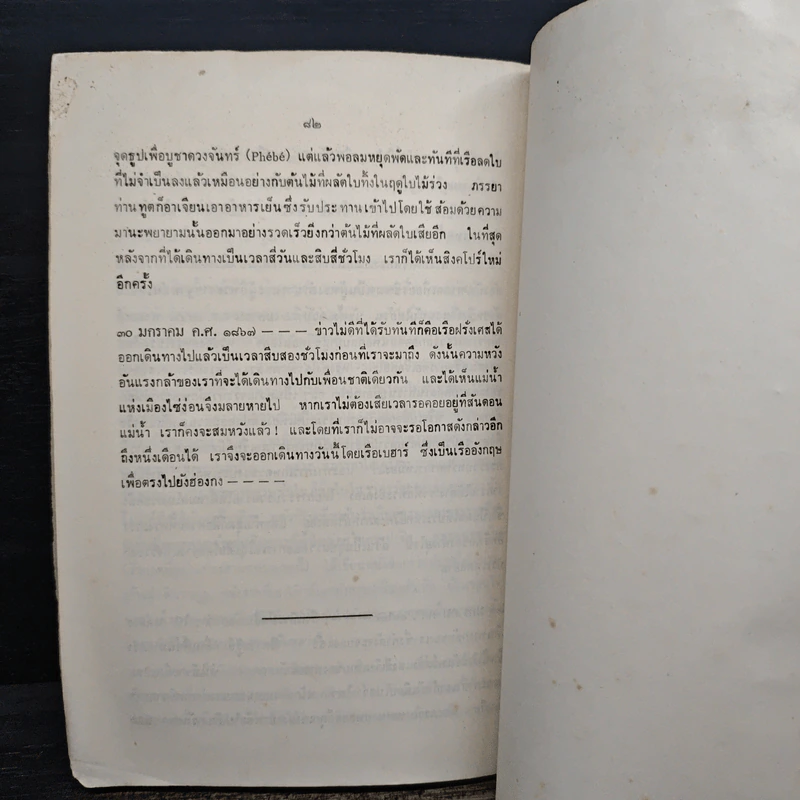 ๘๒
จุดธูปเพื่อบูชาดวงจันทร์ (Phébé) แต่แล้วพอลมหยุดพัดและทันทีที่เรือลดใบ
ที่ไม่จำเป็นลงแล้วเหมือนอย่างกับต้นไม้ที่ผลัดใบทิ้งในฤดูใบไม้ร่วง ภรรยา
ท่านทูตก็อาเจียนเอาอาหารเย็นซึ่งรับประทานเข้าไปโดยใช้ส้อมด้วยความ
มานะพยายามนั้นออกมาอย่างรวดเร็วยิ่งกว่าต้นไม้ที่ผลัดใบเสียอีก ในที่สุด
หลังจากที่ได้เดินทางเป็นเวลาสี่วันและสิบสี่ชั่วโมง เราก็ได้เห็นสิงคโปร์ใหม่
อีกครั้ง
๓๐ มกราคม ค.ศ. ๑๘๖๗ – – – ข่าวไม่ดีที่ได้รับทันทีก็คือเรือฝรั่งเศสได้
ออกเดินทางไปแล้วเป็นเวลาสิบสองชั่วโมงก่อนที่เราจะมาถึง ดังนั้นความหวัง
อันแรงกล้าของเราที่จะได้เดินทางไปกับเพื่อนชาติเดียวกัน และได้เห็นแม่น้ำ
แห่งเมืองไซ่ง่อนจึงมลายหายไป หากเราไม่ต้องเสียเวลารอคอยอยู่ที่สันดอน
แม่น้ำ เราก็คงจะสมหวังแล้ว! และโดยที่เราก็ไม่อาจจะรอโอกาสดังกล่าวอีก
ถึงหนึ่งเดือนได้ เราจึงจะออกเดินทางวันนี้โดยเรือเบฮาร์ ซึ่งเป็นเรืออังกฤษ
เพื่อตรงไปยังฮ่องกง – – – –